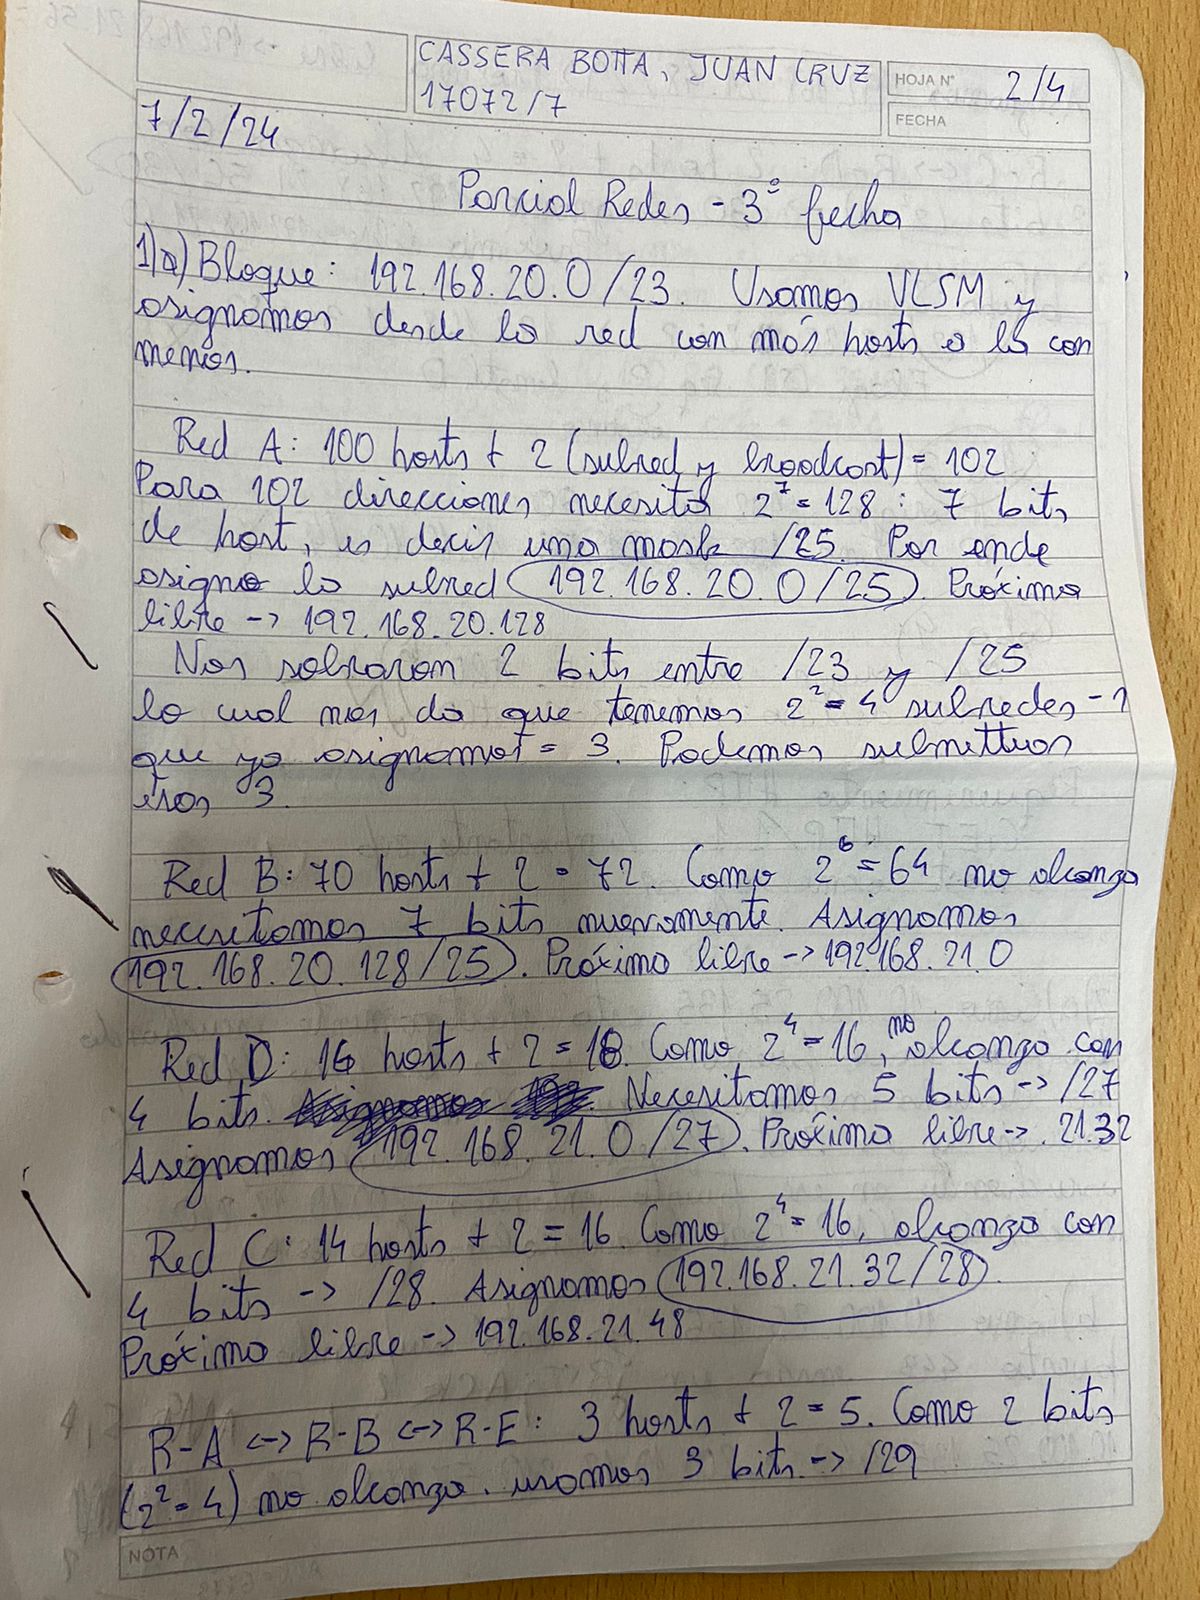 CASSERA BOTTA, JUAN CRUZ
17072/7
HOJA N° 2/4
FECHA
7/2/24
Parcial Redes - 3° fecha
1)a) Bloque: 192.168.20.0/23. Usamos VLSM y
asignamos desde la red con más hosts a la con
menos.
Red A: 100 hosts + 2 (subred y broadcast) = 102
Para 102 direcciones necesito 2^7 = 128 : 7 bits
de host, es decir una mask /25. Por ende
asigno la subred 192.168.20.0/25. Próxima
libre -> 192.168.20.128
Nos sobraron 2 bits entre /23 y /25
lo cual nos da que tenemos 2^2 = 4 subredes - 1
que ya asignamos = 3. Podemos
esos 3.
Red B: 70 hosts + 2 = 72. Como 2^6 = 64 no alcanza
necesitamos 7 bits nuevamente. Asignamos
192.168.20.128/25. Próxima libre -> 192.168.21.0
Red D: 16 hosts + 2 = 18. Como 2^4 = 16, no alcanza con
4 bits. Necesitamos 5 bits -> /27
Asignamos 192.168.21.0/27. Próxima libre -> .21.32
Red C: 14 hosts + 2 = 16. Como 2^4 = 16, alcanza con
4 bits -> /28. Asignamos 192.168.21.32/28.
Próxima libre -> 192.168.21.48
R-A <-> R-B <-> R-E: 3 hosts + 2 = 5. Como 2 bits
(2^2 = 4) no alcanza, usamos 3 bits -> /29
NOTA